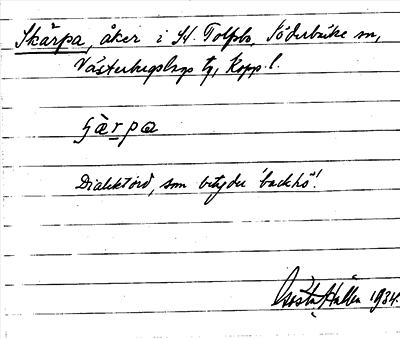 Skärpa, åker i St Tolpbo, Söderbärke sn,
Västerbergslags tg, Kopp. l.
ʃä̀rpa
Dialektord, som betyder 'backhö'.
Gösta Hallén 1934.